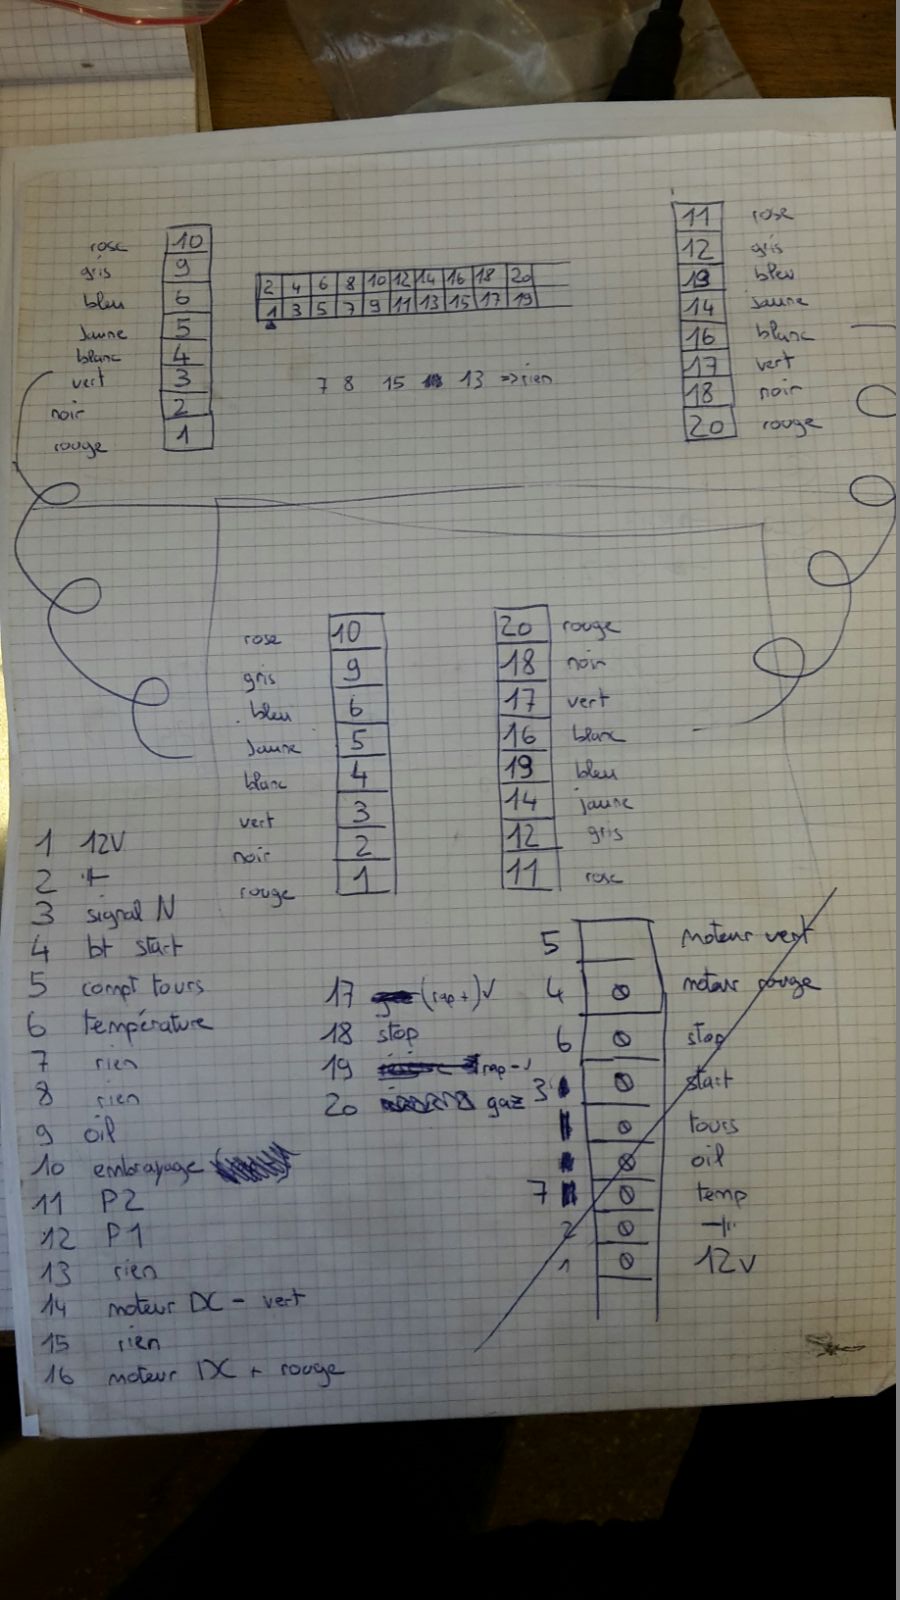 rose 10
gris 9
bleu 6
Jaune 5
blanc 4
vert 3
noir 2
rouge 1
2 4 6 8 10 12 14 16 18 20
1 3 5 7 9 11 13 15 17 19
7 8 15 13 => rien
11 rose
12 gris
19 bleu
14 jaune
16 blanc
17 vert
18 noir
20 rouge
rose 10
gris 9
bleu 6
Jaune 5
blanc 4
vert 3
noir 2
rouge 1
20 rouge
18 noir
17 vert
16 blanc
19 bleu
14 jaune
12 gris
11 rose
1 12V
2
3 signal N
4 bt start
5 compt tours
6 température
7 rien
8 rien
9 oil
10 embrayage
11 P2
12 P1
13 rien
14 moteur DC - vert
15 rien
16 moteur DC + rouge
17 (rap +) √
18 stop
19 rap -
20 gaz
5 moteur vert
4 moteur rouge
6 stop
3 start
tours
oil
7 temp
2
1 12V